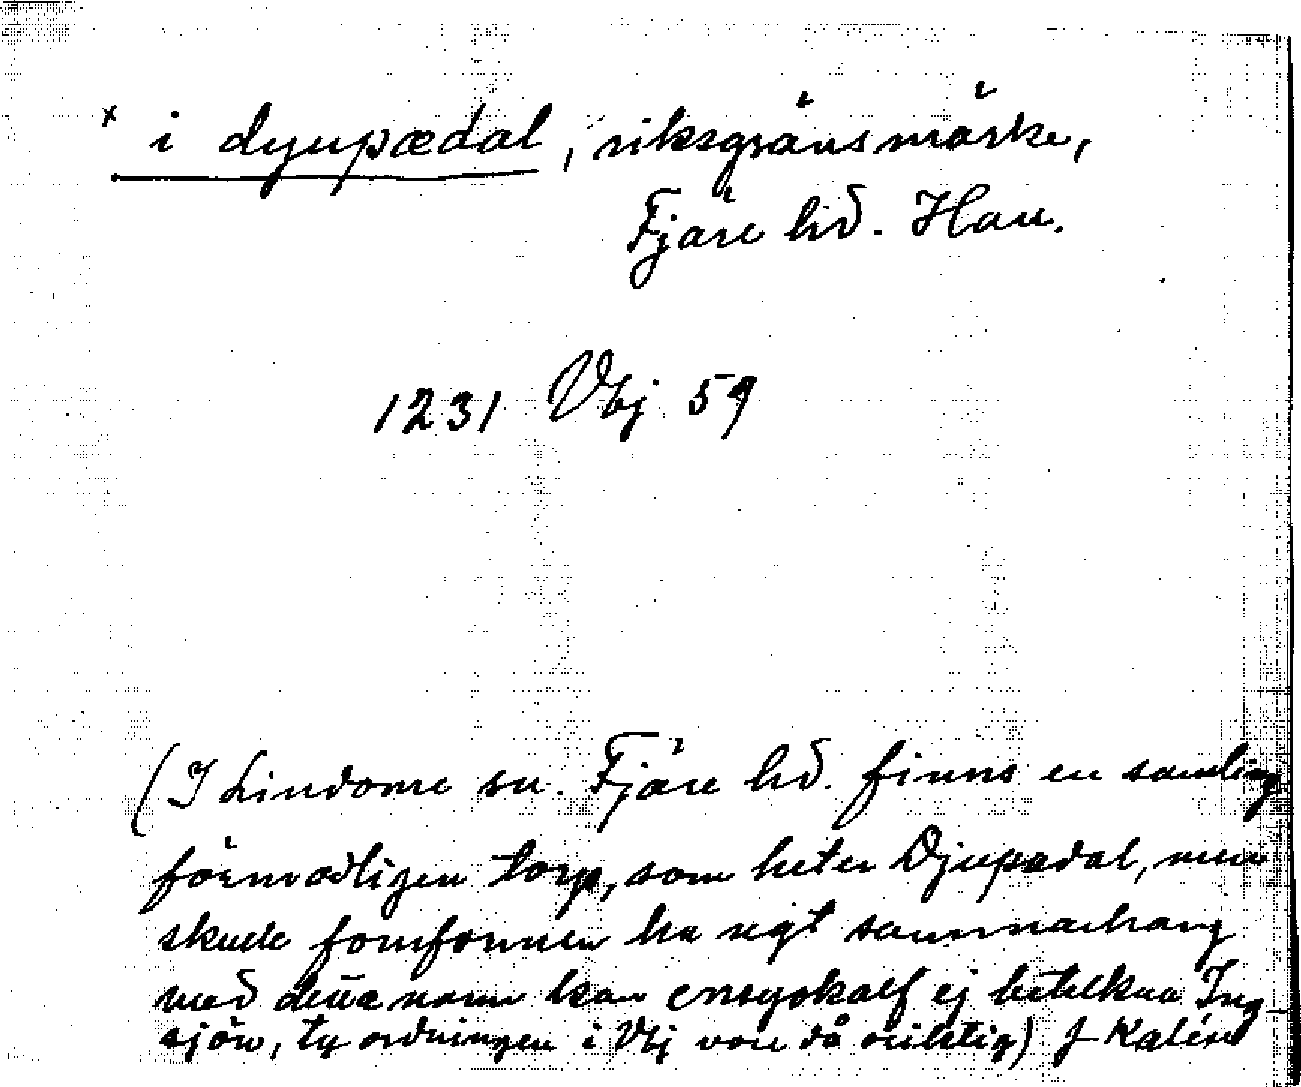 × i dyupædal, riksgränsmärke,
Fjäre hd. Hall.
1231 Vbj 59
(I Lindome sn. Fjäre hd. finns en samling
förmodligen torp, som heter Djupadal, men
skulle fornformen ha ngt sammanhang
med detta namn kan ensyokalf ej beteckna Ing-
sjön, ty ordningen i Vbj vore då oriktig) J Kalén